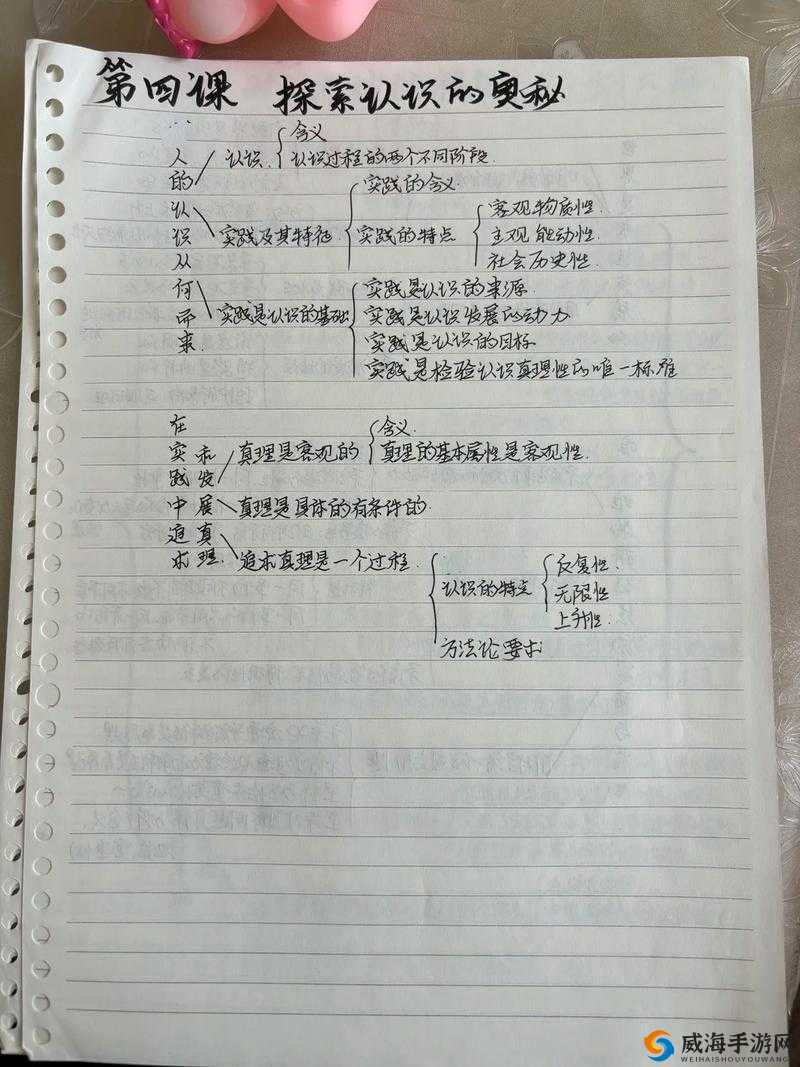 第四课 探索认识的奥秘
人的认识从何而来
认识
含义
认识过程的两个不同阶段
实践及其特征
实践的含义
实践的特点
客观物质性
主观能动性
社会历史性
实践是认识的基础
实践是认识的来源
实践是认识发展的动力
实践是认识的目标
实践是检验认识真理性的唯一标准
在实践中追求和发展真理
真理是客观的
含义
真理的基本属性是客观性
真理是具体的有条件的
追求真理是一个过程
认识的特点
反复性
无限性
上升性
方法论要求
威海手游网
WEIHAISHOUYOUWANG